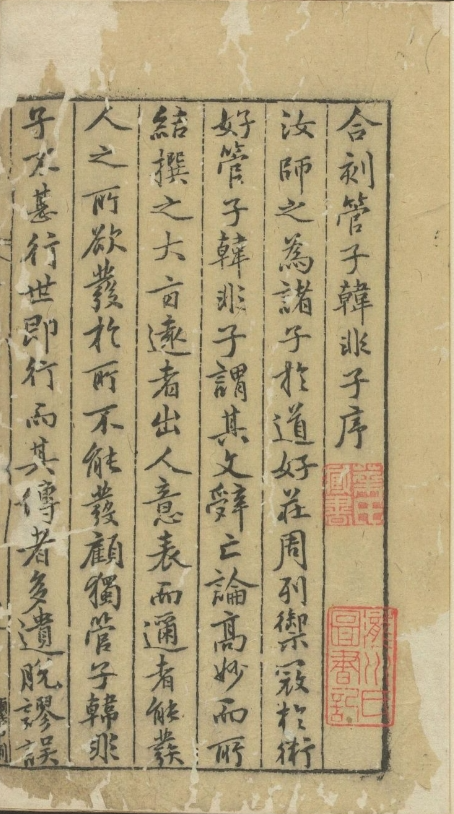 合刻管子韓非子序
汝師之為諸子於道好莊周列禦寇於術
好管子韓非子謂其文辭亡論髙妙而所
結撰之大㫖遠者出人意表而邇者能發
人之所欲發於所不能發顧獨管子韓非
子不甚行世即行而其傳者多遺脫謬誤